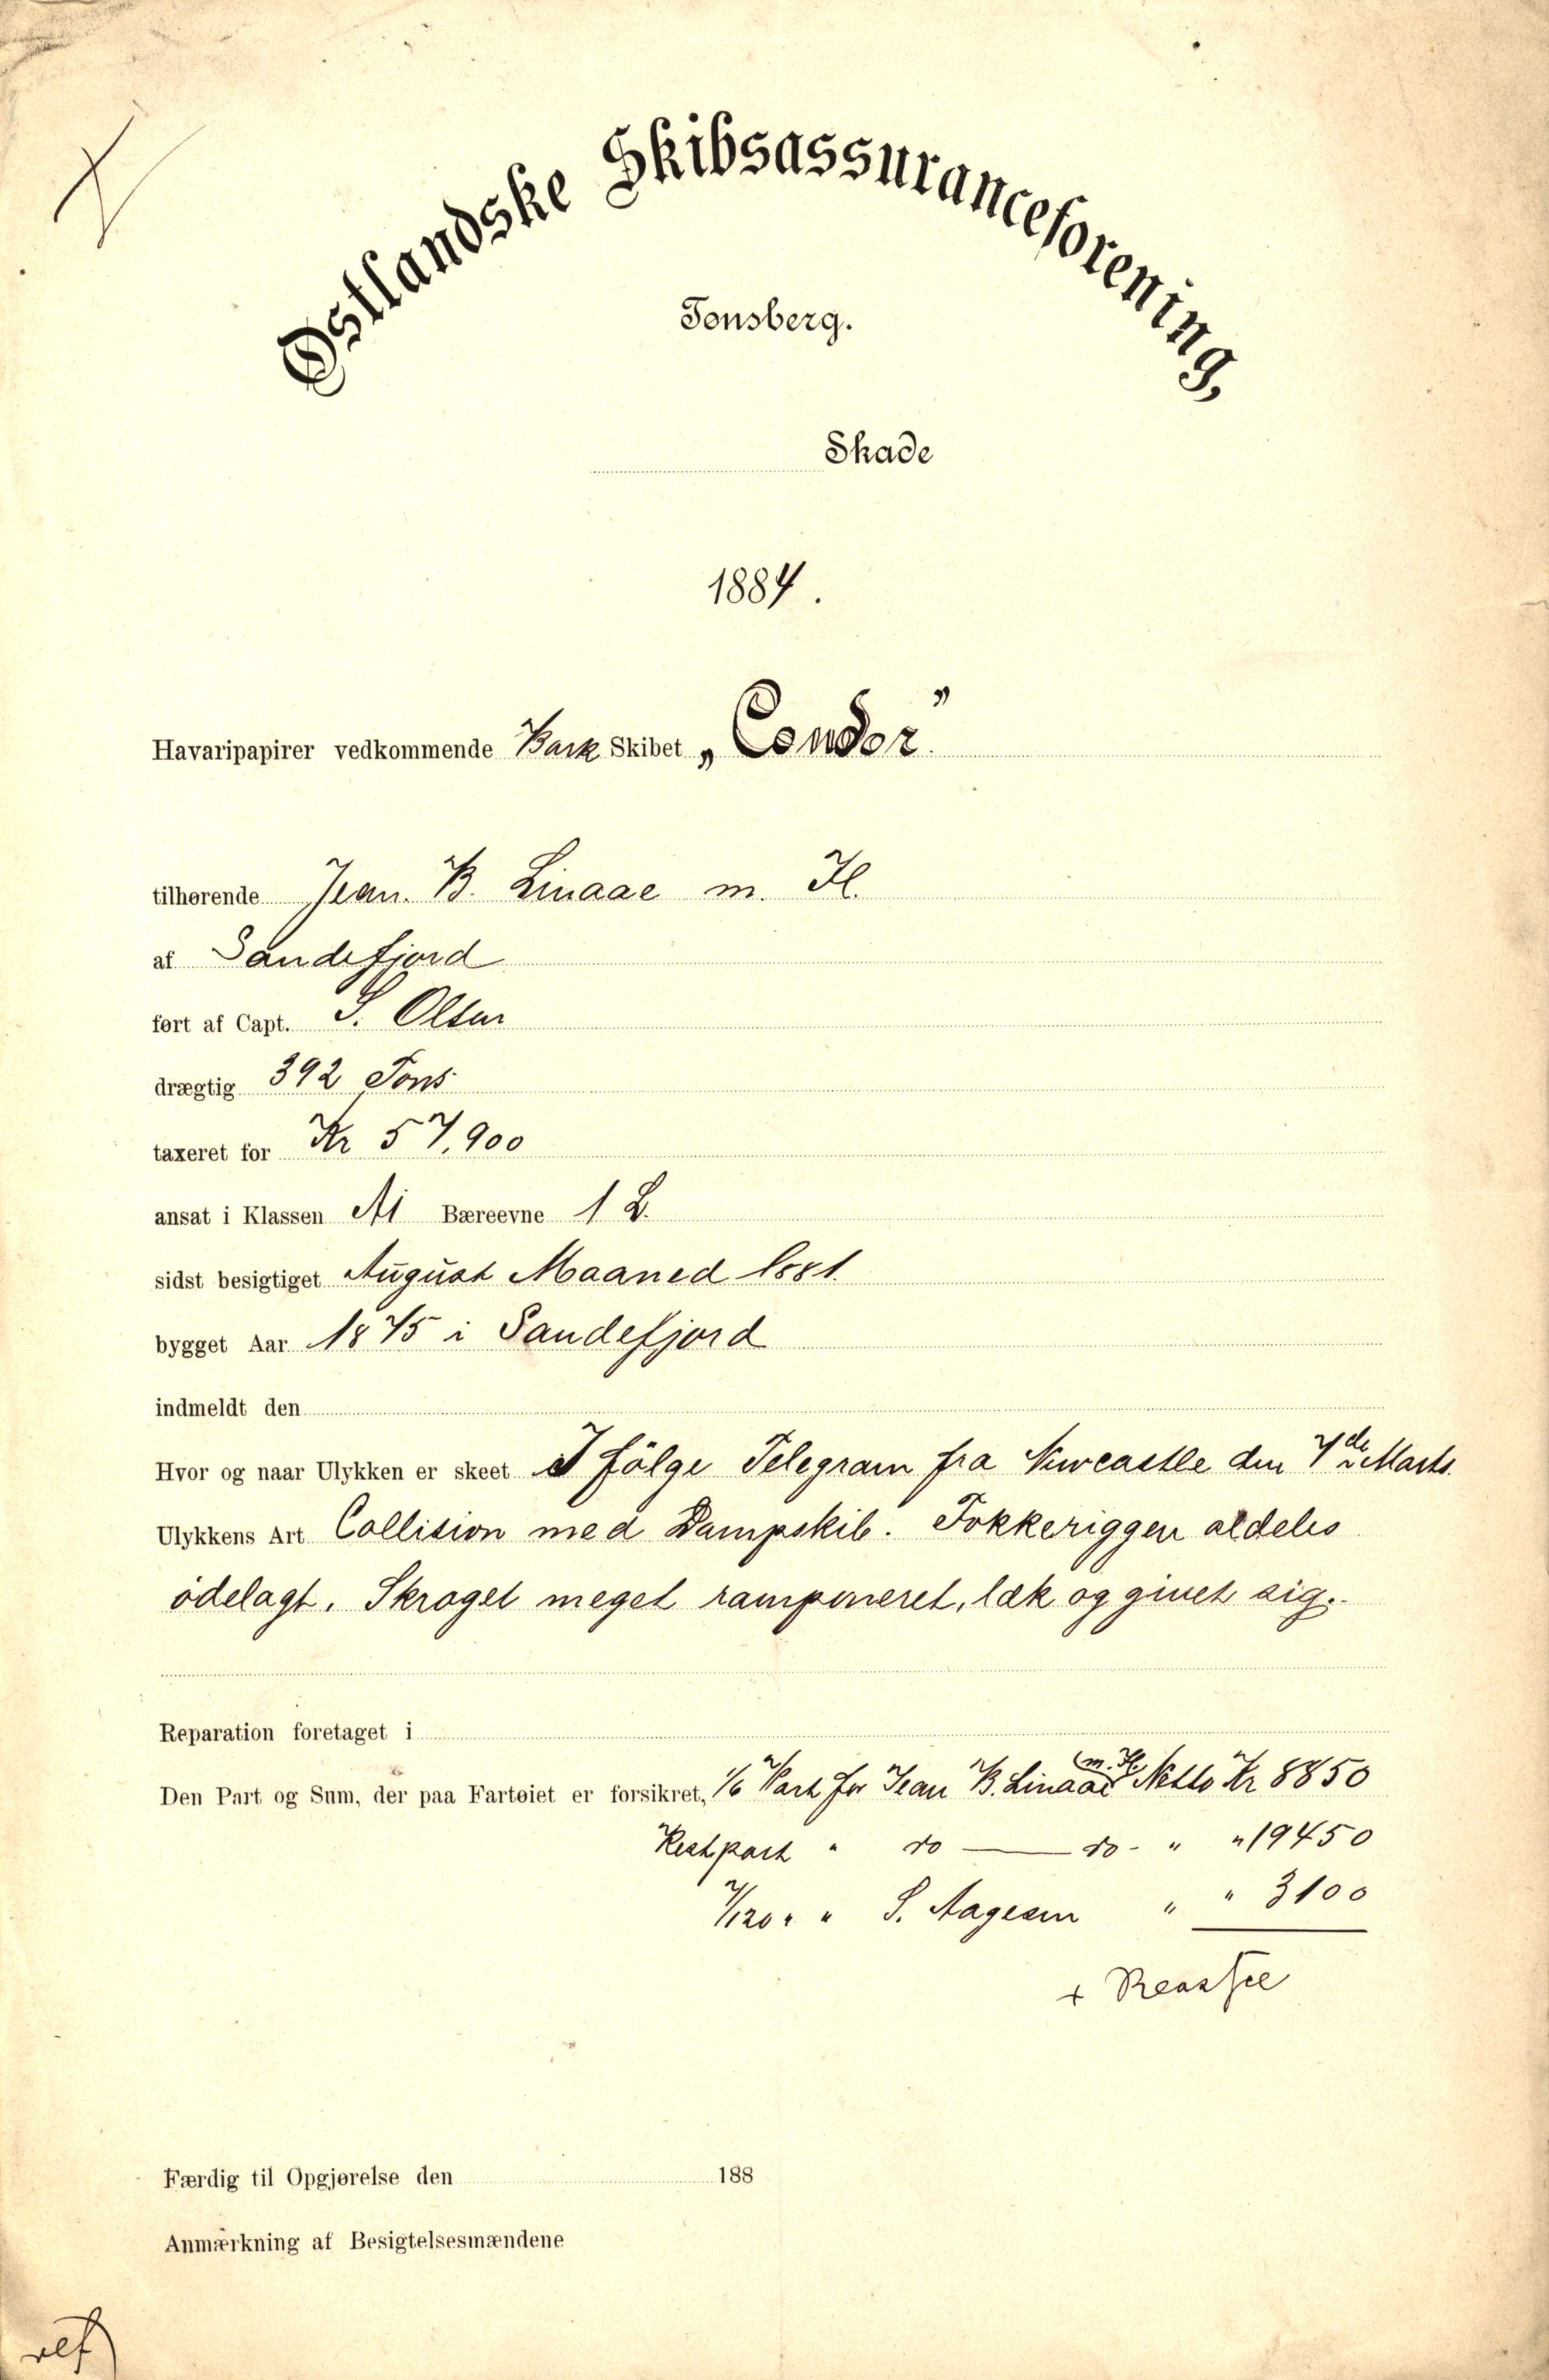 Østlandske Skibsassuranceforening,
Tønsberg.
Skade
1884.
Havaripapirer vedkommende Bark Skibet „Condor”
tilhørende Jean. B. Linaae m. Fl.
af Sandefjord
ført af Capt. S. Olsen
drægtig 392 Tons
taxeret for Kr 57,900
ansat i Klassen A1 Bæreevne 1 L.
sidst besigtiget August Maaned 1881.
bygget Aar 1875 i Sandefjord
indmeldt den
Hvor og naar Ulykken er skeet I følge Telegram fra Newcastle den 7de Marts.
Ulykkens Art Collision med Dampskib. Fokkeriggen aldeles
ödelagt, Skroget meget ramponeret, læk og givet sig.
Reparation foretaget i
Den Part og Sum, der paa Fartøiet er forsikret, 1/6 Part for Jean B. Linaae m. Fl. Netto Kr 8850
Restpart " do — do - " " 19450
7/120 " " S. Aagesen " " 3100
Færdig til Opgjørelse den 188
Anmærkning af Besigtelsesmændene